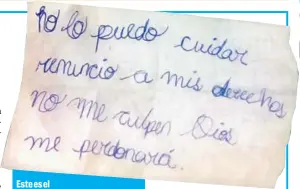 no lo puedo cuidar
renuncio a mis derechos
no me culpen Dios
me perdonará.
Este es el